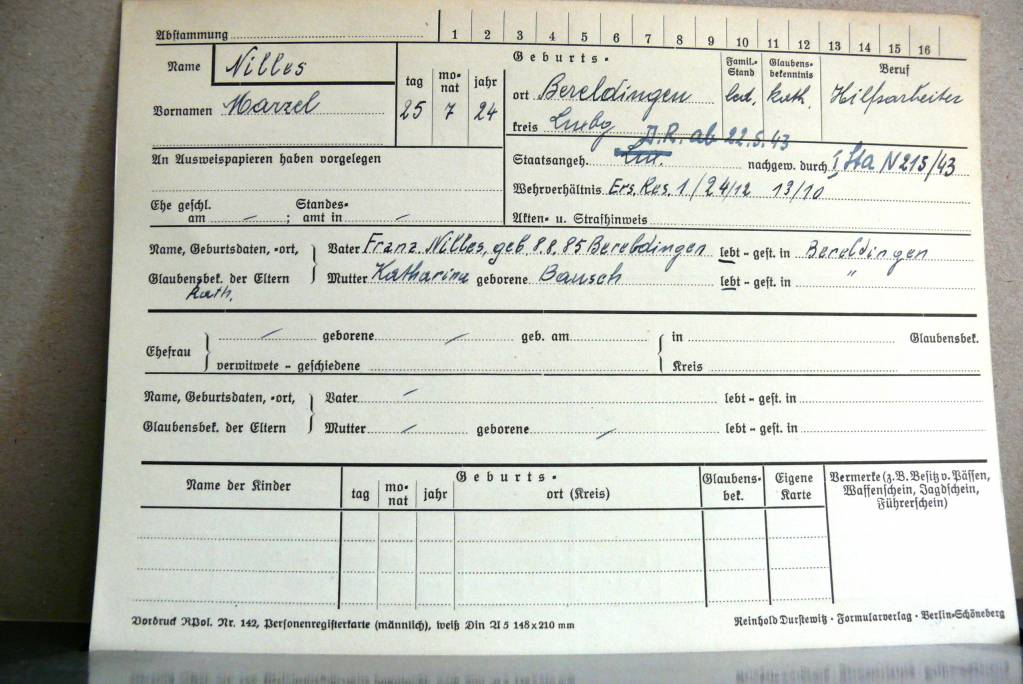 Abstammung 1 2 3 4 5 6 7 8 9 10 11 12 13 14 15 16
Name Nilles
Vornamen Marzel
tag monat jahr
25 7 24
Geburts-
ort Bereldingen
kreis Luxbg
Famil.-Stand
led.
Glaubens-bekenntnis
kath.
Beruf
Hilfsarbeiter
D.R. ab 22.5.43
An Ausweispapieren haben vorgelegen
Staatsangeh. Lux. nachgew. durch I Sta N 213/43
Wehrverhältnis Ers. Res. 1 / 24/12 13/10
Ehe geschl. Standes-
am — ; amt in —
Akten- u. Strafhinweis
Name, Geburtsdaten, -ort, Vater Franz Nilles, geb. 8.8.85 Bereldingen lebt - gest. in Bereldingen
Glaubensbek. der Eltern Mutter Katharina geborene Bausch lebt - gest. in "
Kath.
Ehefrau — geborene — geb. am in Glaubensbek.
verwitwete - geschiedene Kreis
Name, Geburtsdaten, -ort, Vater — lebt - gest. in
Glaubensbek. der Eltern Mutter — geborene — lebt - gest. in
Name der Kinder
Geburts-
tag monat jahr ort (Kreis)
Glaubens-bek.
Eigene Karte
Vermerke (z. B. Besitz v. Pässen,
Waffenschein, Jagdschein,
Führerschein)
Vordruck RPol. Nr. 142, Personenregisterkarte (männlich), weiß Din A 5 148 x 210 mm
Reinhold Durstewitz · Formularverlag · Berlin-Schöneberg